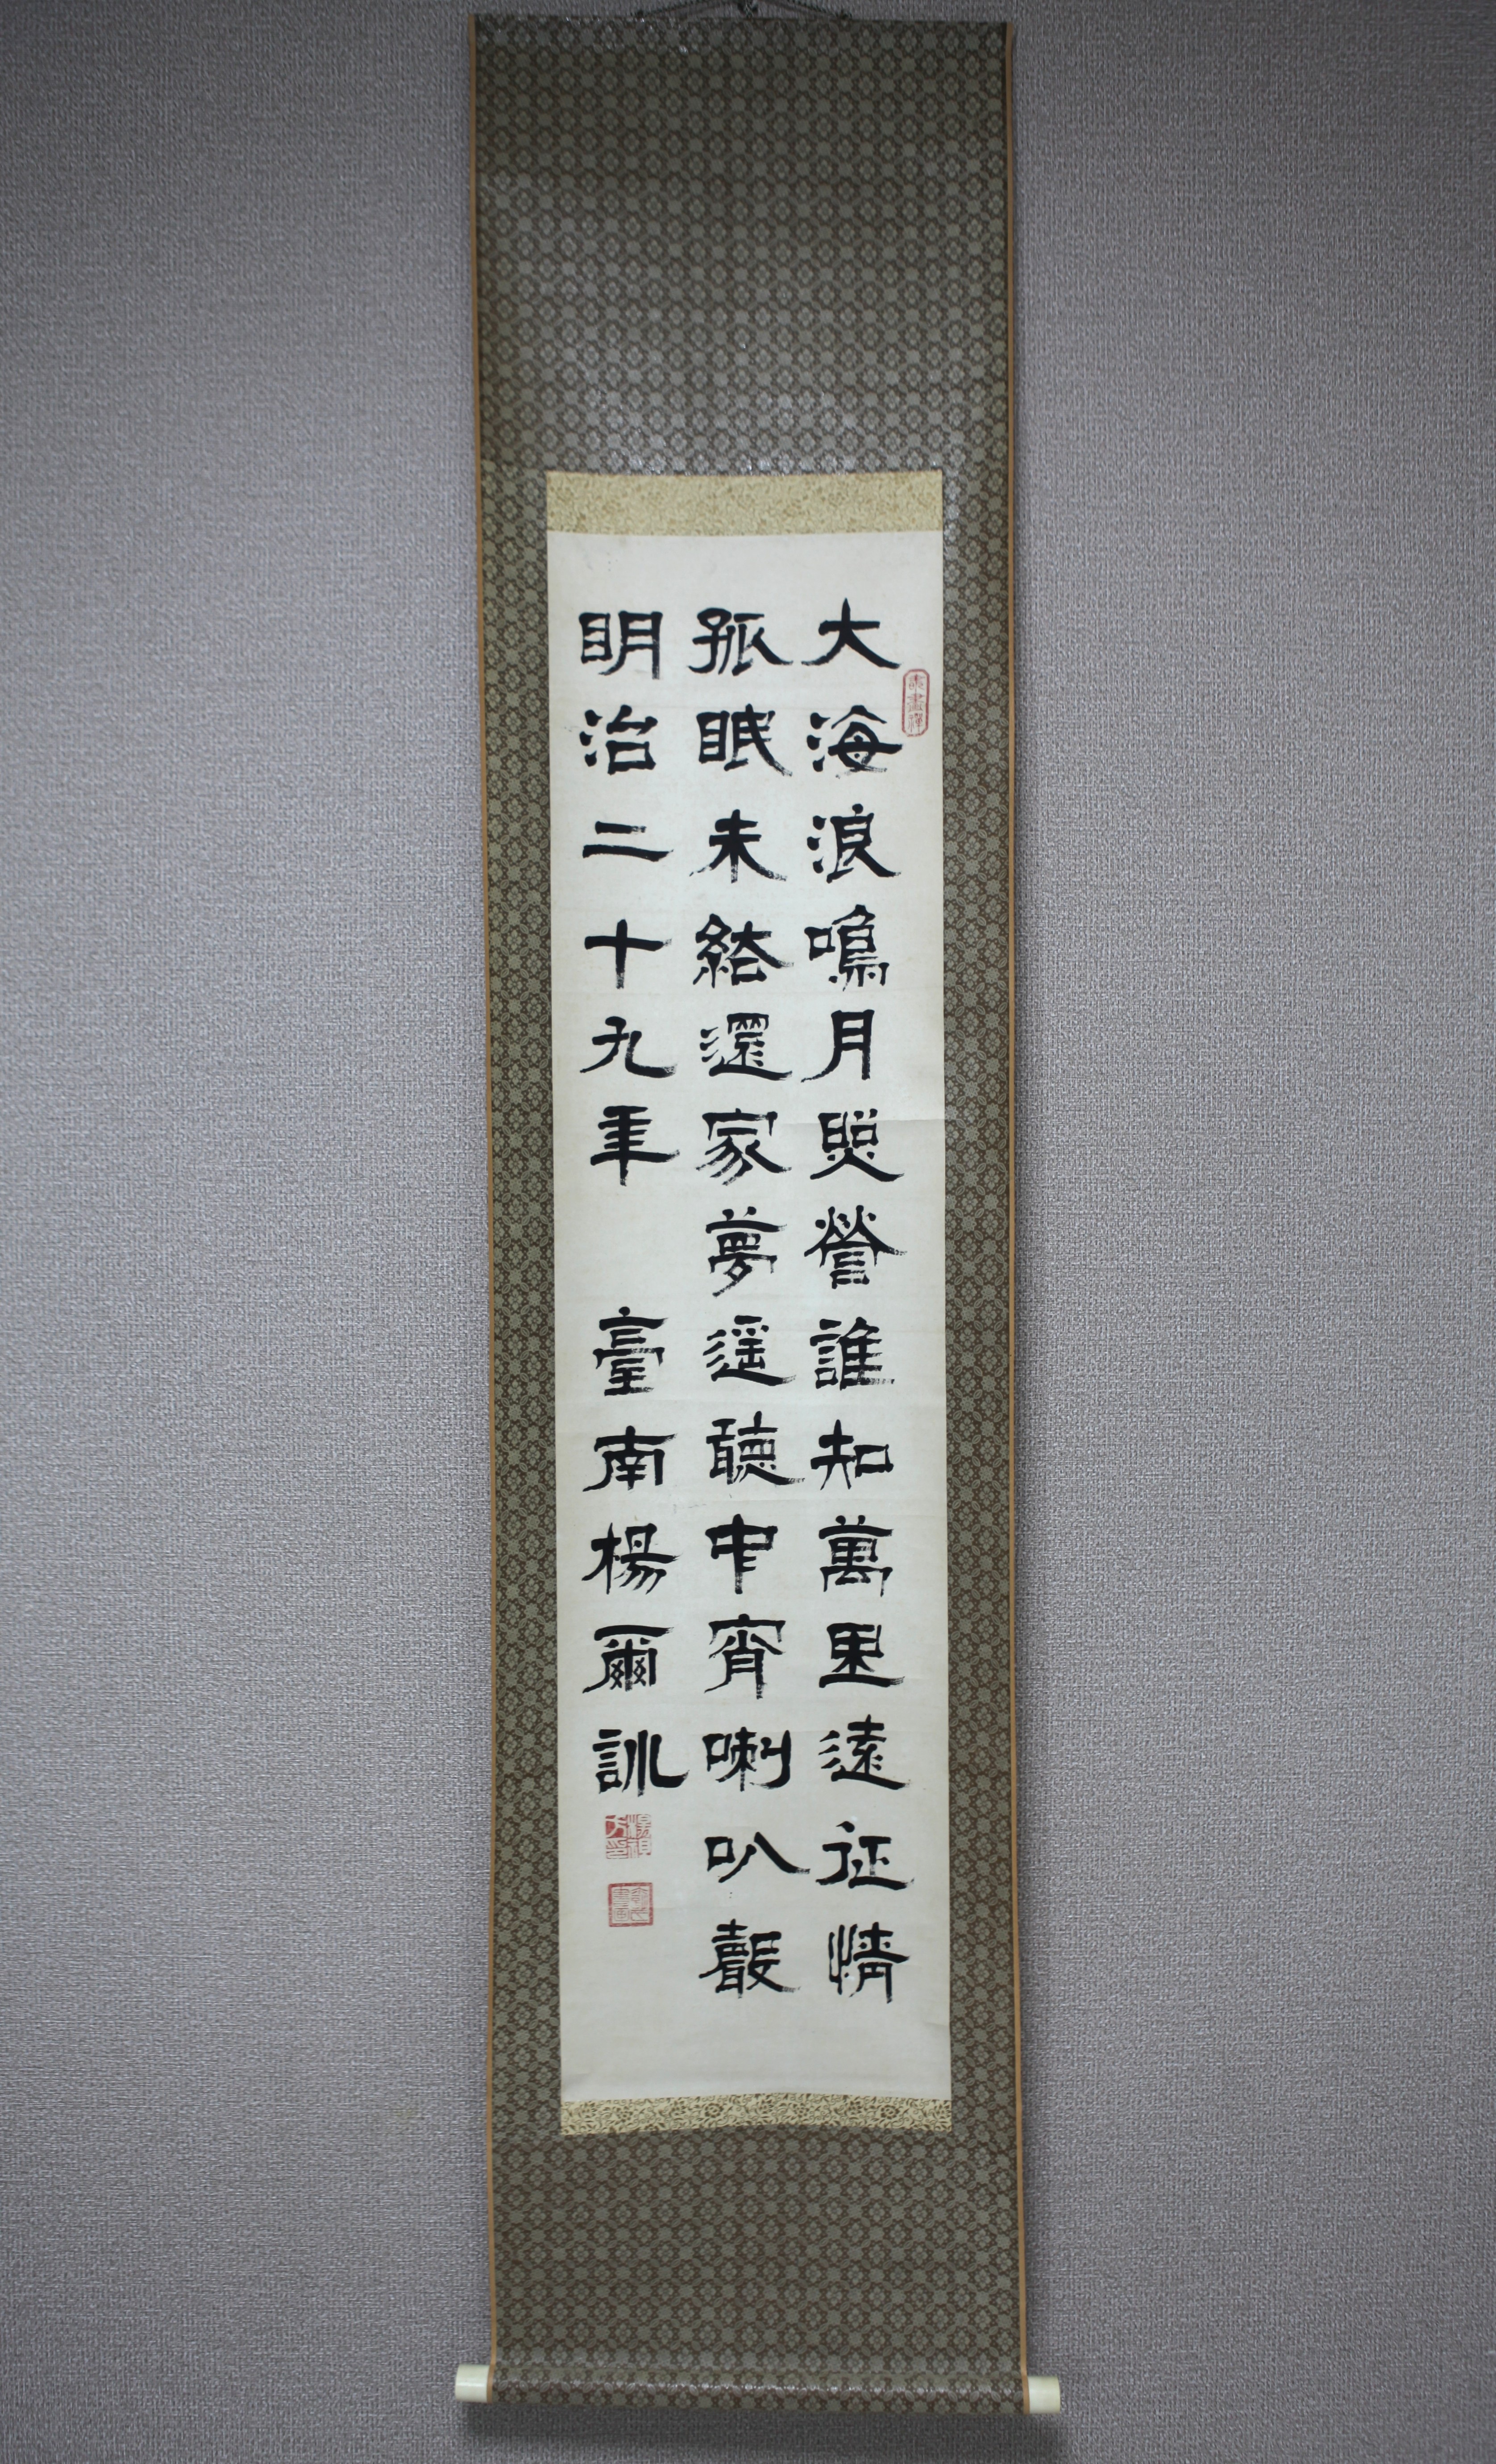 大海浪鳴月照營誰知萬里遠征情
孤眠未結還家夢遥聽中宵喇叭聲
明治二十九年 臺南楊爾訓